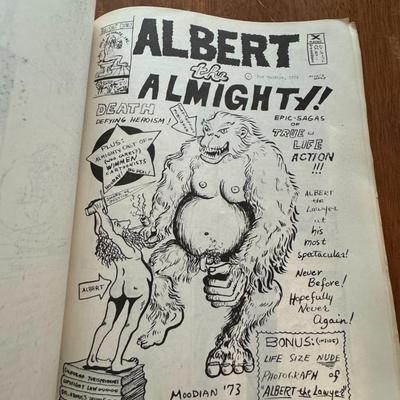 ALBERT
the
ALMIGHTY!
DEATH
DEFYING HEROISM!
PLUS:
ALMIGHTY CAST OF
WIMMEN
CARTOONISTS
EPIC-SAGAS
OF
TRUE
LIFE
ACTION!!!
ALBERT
the
Lawyer
at
his
most
spectacular!
Never
Before!
Hopefully
Never
Again!
ALBERT
BONUS: (inside)
LIFE SIZE NUDE
PHOTOGRAPH of
"ALBERT the Lawyer"
CALIFORNIA JURISPRUDENCE
COPYRIGHT LAW
MOODIAN '73